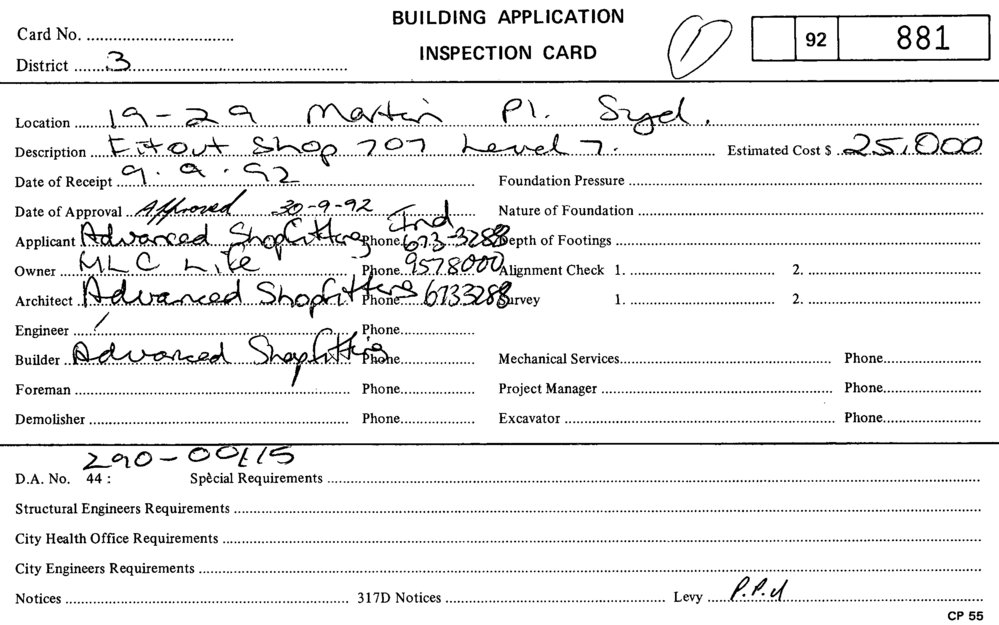 Card No.
BUILDING APPLICATION
INSPECTION CARD
1
92 881
District 3
Location 19-29 Martin Pl. Syd.
Description Fitout Shop 707 Level 7. Estimated Cost $ 25,000
Date of Receipt 9.9.92 Foundation Pressure
Date of Approval Approved 30-9-92 Nature of Foundation
Applicant Advanced Shopfitting Ind Phone 673-3288 Depth of Footings
Owner MLC Life Phone 9578000 Alignment Check 1. 2.
Architect Advanced Shopfitters Phone 6733288 Survey 1. 2.
Engineer Phone
Builder Advanced Shopfitting Phone Mechanical Services Phone
Foreman Phone Project Manager Phone
Demolisher Phone Excavator Phone
D.A. No. 44 : Special Requirements
Structural Engineers Requirements
City Health Office Requirements
City Engineers Requirements
Notices 317D Notices Levy
CP 55